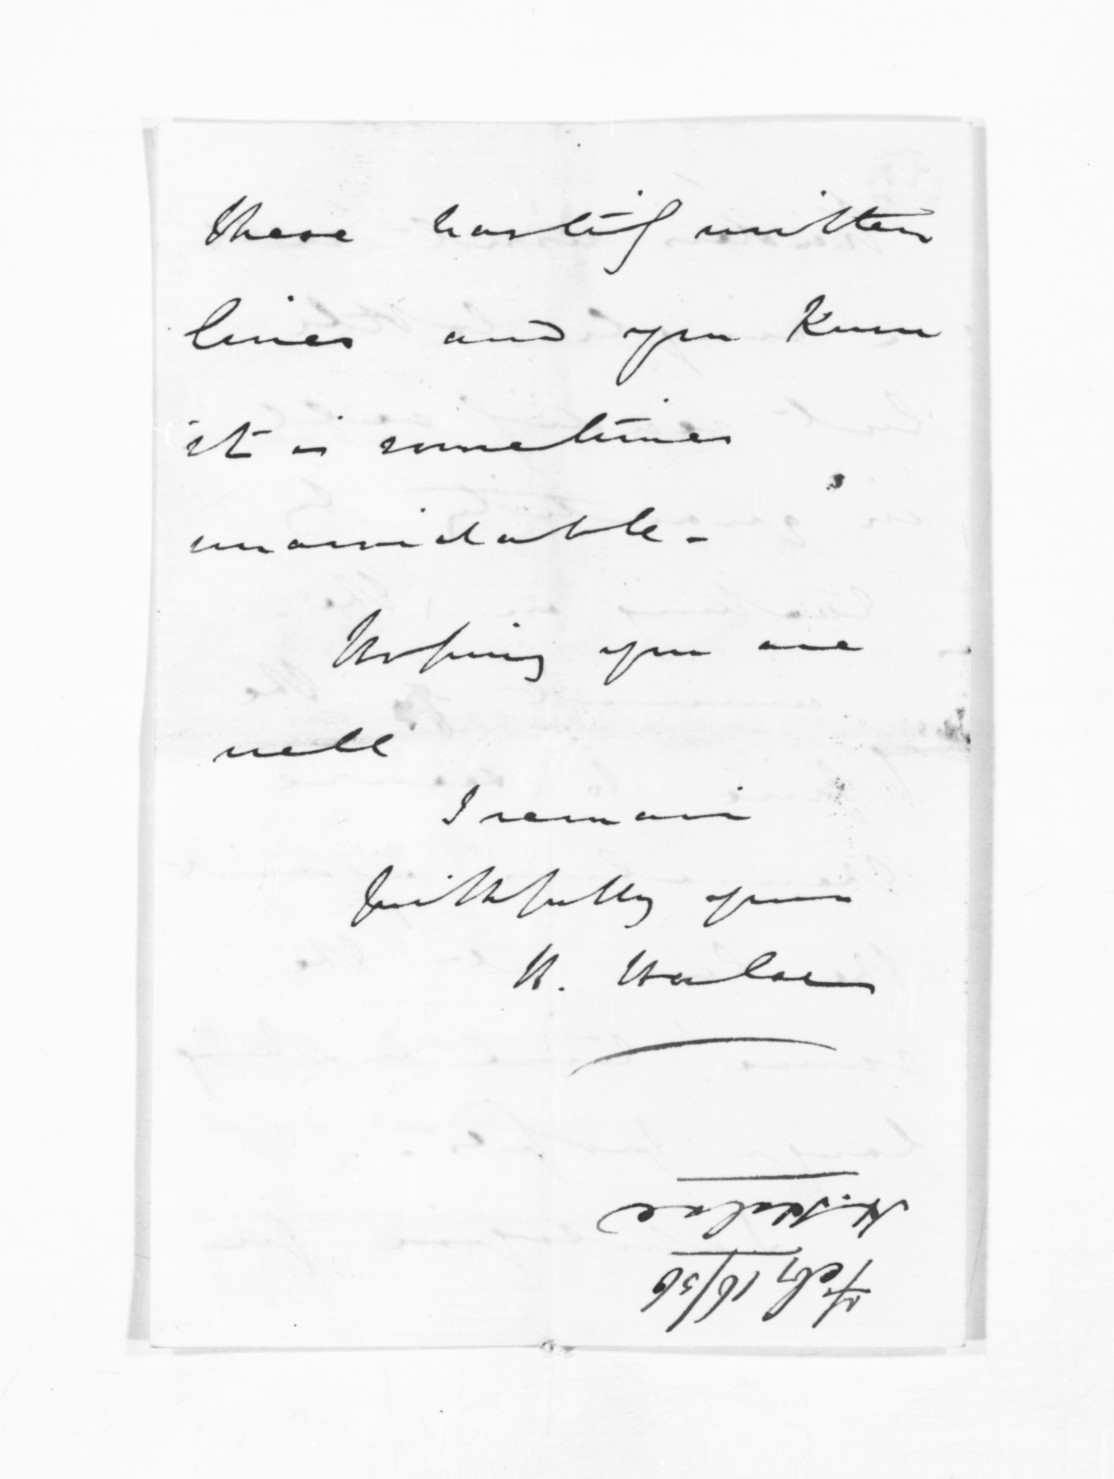 these hastily written
lines and you know
it is sometimes
unavoidable.
Hoping you are
well
I remain
faithfully yours
H. Halse
H. Halse
Feby 16/56